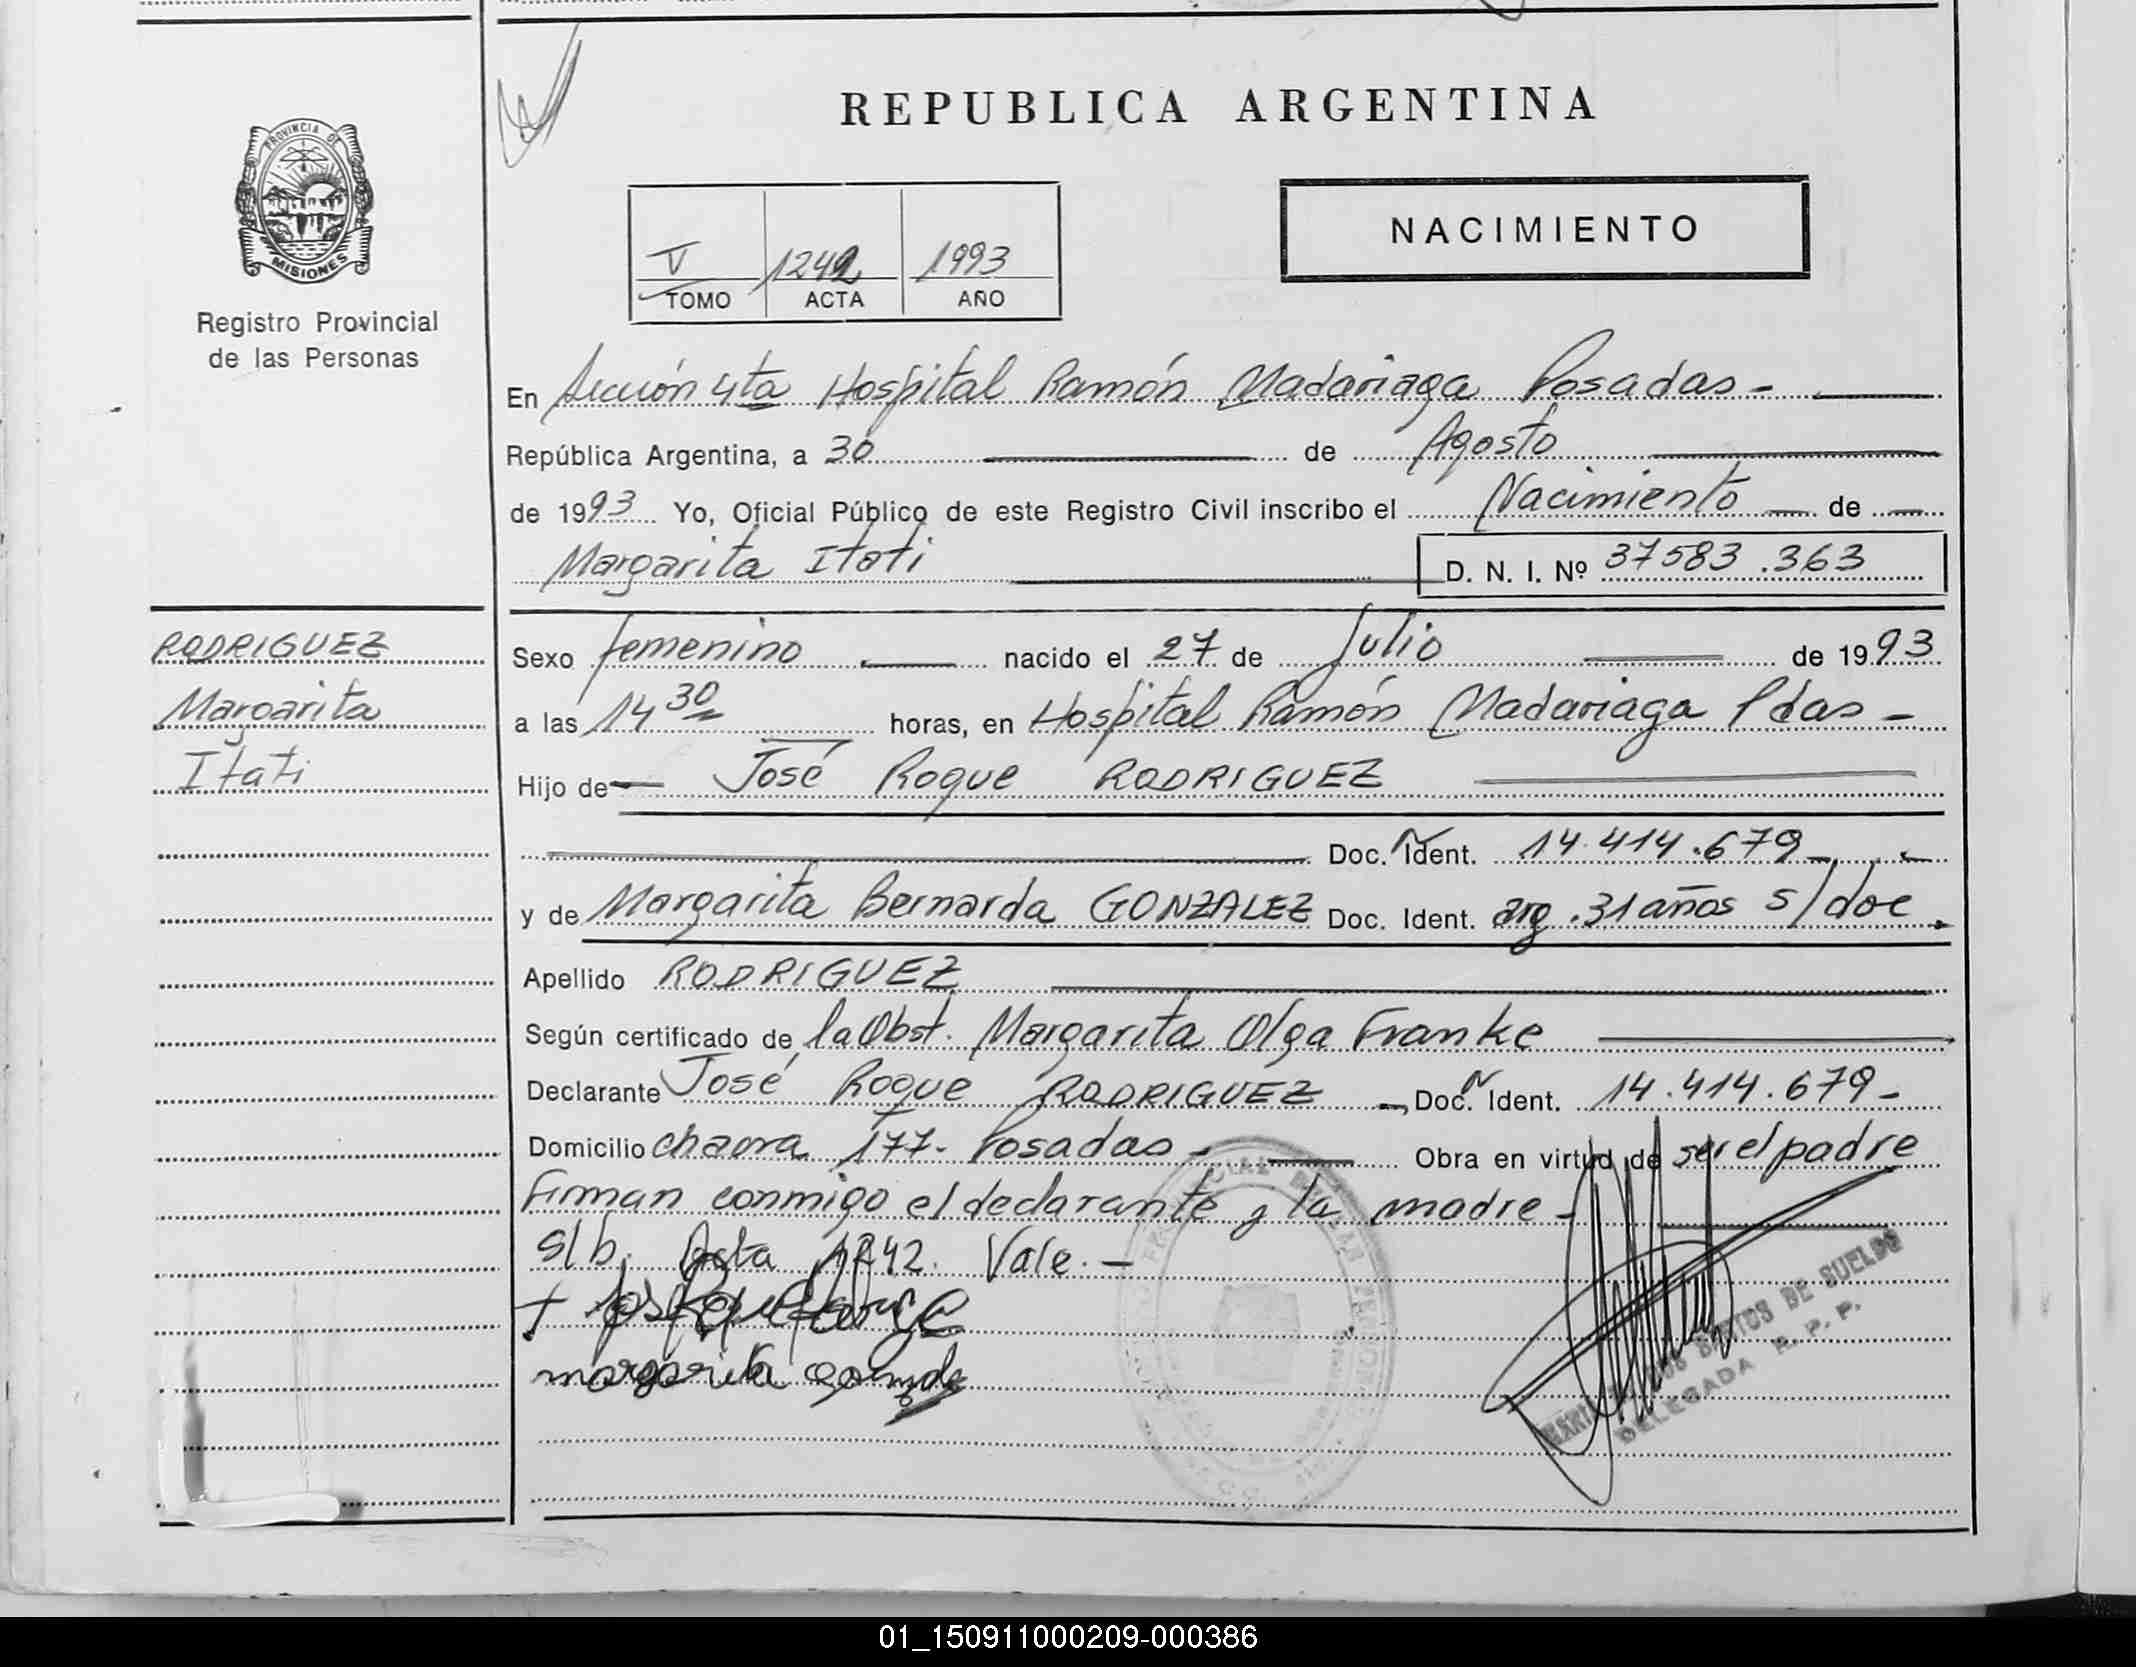 REPUBLICA ARGENTINA
PROVINCIA DE
MISIONES
Registro Provincial
de las Personas
NACIMIENTO
V 1242 1993
TOMO ACTA AÑO
En Sección 4ta Hospital Ramón Madariaga Posadas -
República Argentina, a 30 de Agosto
de 1993 Yo, Oficial Público de este Registro Civil inscribo el Nacimiento de
Margarita Itati D. N. I. Nº 37583.363
RODRIGUEZ
Margarita
Itati
Sexo femenino nacido el 27 de Julio de 1993
a las 14 30 horas, en Hospital Ramón Madariaga Pdas -
Hijo de José Roque RODRIGUEZ
Doc. Ident. 14.414.679
y de Margarita Bernarda GONZALEZ Doc. Ident. arg. 31 años s/doc
Apellido RODRIGUEZ
Según certificado de la Obst. Margarita Olga Franke
Declarante José Roque RODRIGUEZ Doc. Ident. 14.414.679-
Domicilio chacra 177- Posadas - Obra en virtud de ser el padre
Firman conmigo el declarante y la madre -
S/b. Acta 1242. Vale. -
margarita
SANTOS DE SUELDO
DELEGADA R. P. P.
01_150911000209-000386